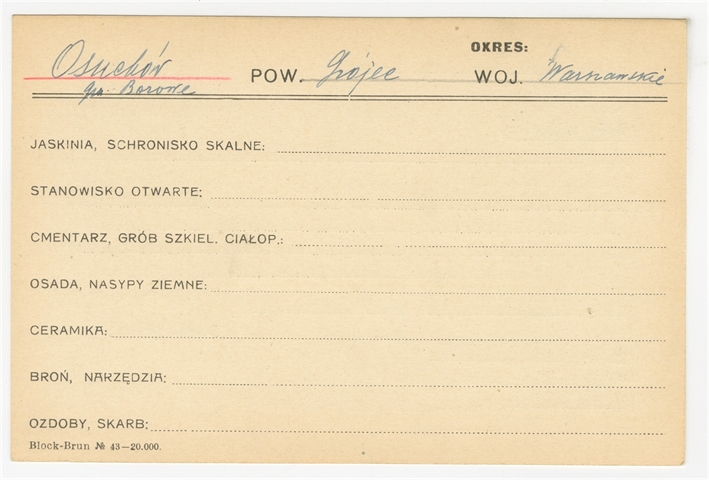 OKRES:
Osuchów POW. Grójec WOJ. Warszawskie
gm. Borowe
JASKINIA, SCHRONISKO SKALNE:
STANOWISKO OTWARTE:
CMENTARZ, GRÓB SZKIEL. CIAŁOP.:
OSADA, NASYPY ZIEMNE:
CERAMIKA:
BROŃ, NARZĘDZIA:
OZDOBY, SKARB:
Block-Brun № 43—20.000.